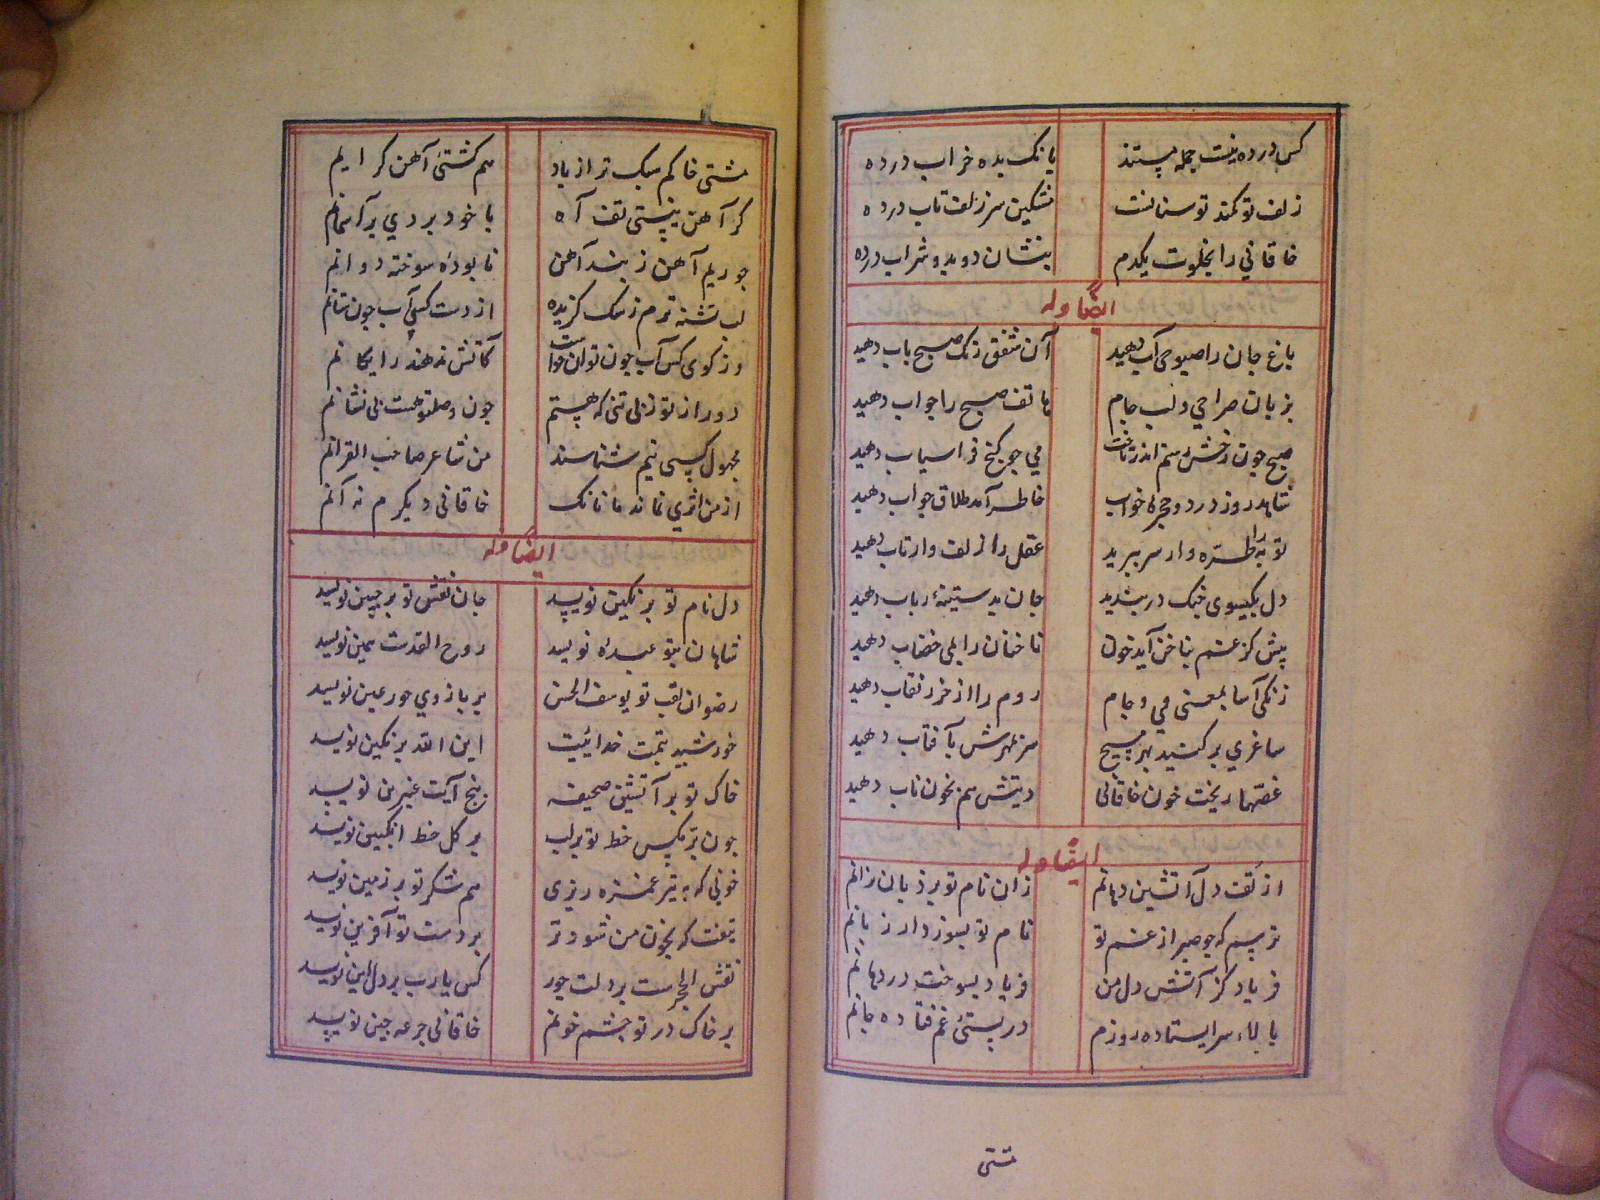 کس در ده نیست جمله مستند یا نک بده خراب در ده
زلف تو کمند توسنانست مشکین سر زلف تاب در ده
خاقانی را بخلوت یکدم بنشان دو بدو شراب در ده
ایضاً وله
باغ جان را صبوحی آب دهید آن شفق رنگ صبح باب دهید
بزبان صراحی و لب جام هاتف صبح را جواب دهید
صبح چون رخش رستم اندر تاخت می چو گنج فراسیاب دهید
شاهد روز در دو حجره خواب خاطر آمد طلاق خواب دهید
توبه را طره وار سر ببرید عقل را زلف وار تاب دهید
دل بگیسوی چنک در بندید جان بدستینهٔ رباب دهید
پیش کز غم بناخن آید خون ناخنان را بمی خضاب دهید
زنکی آسا بمعنی می و جام روم را از خزر نقاب دهید
ساغری برکشید بهر مسیح سر بمهرش بآفتاب دهید
غصها ریخت خون خاقانی دیتش هم بخون ناب دهید
ایضاً وله
از تفت دل آتشین دهانم زان نام تو بر زبان نرانم
ترسم که چو صبر از غم تو نام تو بسوزد از زبانم
فریاد کز آتش دل من فریاد بسوخت در دهانم
بالاء سر ایستاده روزم در پستئ غم فتاده جانم
مشتی
مشتی خاکم سبک تر از باد هم کشتئ آهن گرایم
گر آهن نیستی تف آه با خود بردی بر آسمانم
چو ریم آهن ز بند آهن نابوده سوخته دوانم
لب تشنه ترم ز سک گزیده از دست کس آب چون ستانم
وز کوی کس آب چون توان خواست کآتش ندهند رایگانم
دور از تو ز بی تنی که هستم چون وصلتو هست بی نشانم
مجهول کسی نیم شناسند من شاعر صاحب القرانم
از من اثری نماند مانا نک خاقانی دیگرم نه آنم
ایضاً وله
دل نام تو بر نگین نویسد جان نقش تو بر جبین نویسد
شاهان بتو عبدهٔ نویسد روح القدست همین نویسد
رضوان لقب تو یوسف الحسن بر بازوی حور عین نویسد
خورشید بتمت خدائیت این الله بر نگین نویسد
خاک تو بر آتشین صحیفه پنج آیت عنبرین نویسد
چون بر مکس خط تو بر لب بر گل خط انگبین نویسد
خونی که به تیر غمزه ریزی هم شکر تو بر زمین نویسد
تیغت که بخون من شود تر بر دست تو آفرین نویسد
نقش الحجرست بر دلت جور کس یارب بر دل این نویسد
بر خاک در تو چشم خونم خاقانی جرعه چین نویسد